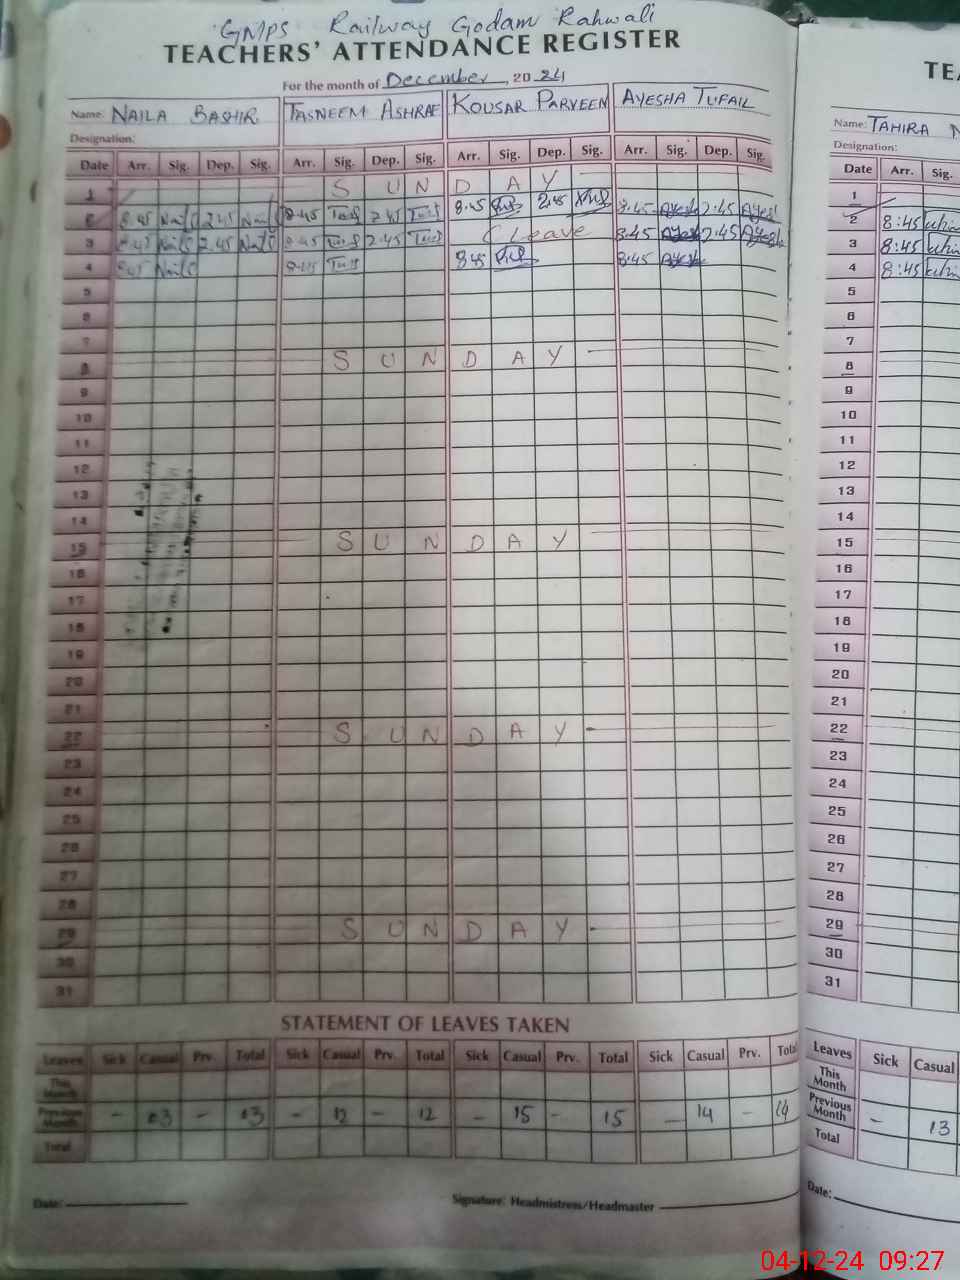 GMPS Railway Godam Rahwali
TEACHERS' ATTENDANCE REGISTER
For the month of December, 2024
Name: NAILA BASHIR TASNEEM ASHRAF KOUSAR PARVEEN AYESHA TUFAIL
Designation:
Date Arr. Sig. Dep. Sig. Arr. Sig. Dep. Sig. Arr. Sig. Dep. Sig. Arr. Sig. Dep. Sig.
1 SUNDAY
2 8.45 2.45 8.45 2.45 8.45 2.45 8.45 2.45
3 8.45 2.45 8.45 2.45 C Leave 8.45 2.45
4 8.45 8.45 8.45 8.45
5
6
7
8 SUNDAY
9
10
11
12
13
14
15 SUNDAY
16
17
18
19
20
21
22 SUNDAY
23
24
25
26
27
28
29 SUNDAY
30
31
STATEMENT OF LEAVES TAKEN
Leaves Sick Casual Prv. Total Sick Casual Prv. Total Sick Casual Prv. Total Sick Casual Prv. Total
This Month
Previous Month - 03 - 03 - 12 - 12 - 15 - 15 - 14 - 14
Total
Date: Signature: Headmistress/Headmaster
TEA
Name: TAHIRA N
Designation:
Date Arr. Sig.
1
2 8:45
3 8:45
4 8:45
5
6
7
8
9
10
11
12
13
14
15
16
17
18
19
20
21
22
23
24
25
26
27
28
29
30
31
Leaves Sick Casual
This Month
Previous Month - 13
Total
Date:
04-12-24 09:27